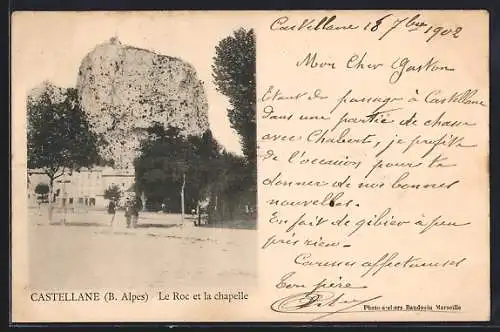 Castellane 18 7bre 1902
Mon Cher Gaston
Etant de passage à Castellane
dans une partie de chasse
avec Chabert, je profite
de l'occasion pour te
donner de nos bonnes
nouvelles.
En fait de gibier à peu
près rien.
Caresses affectueuses
Ton père
CASTELLANE (B. Alpes) Le Roc et la chapelle
Photo ateliers Baudouin Marseille